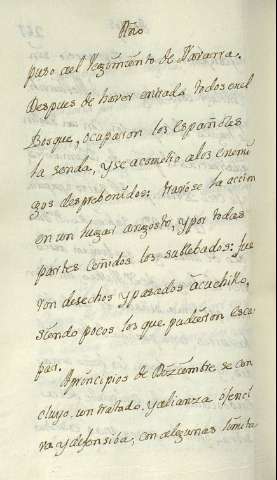 Año
puso del Regimiento de Navarra.
Despues de haver entrado todos en el
Bosque, ocuparon los Españoles
la senda, y se acometio a los enemi
gos desprebenidos: travóse la accion
en un lugar angosto, y por todas
partes ceñidos los sublebados: fue
ron desechos y pasados à cuchillo,
siendo pocos los que pudieron esca
par.
A principios de Diziembre se con
cluyo, un tratado, y alianza ofenci
va y defensiba, con algunas limita